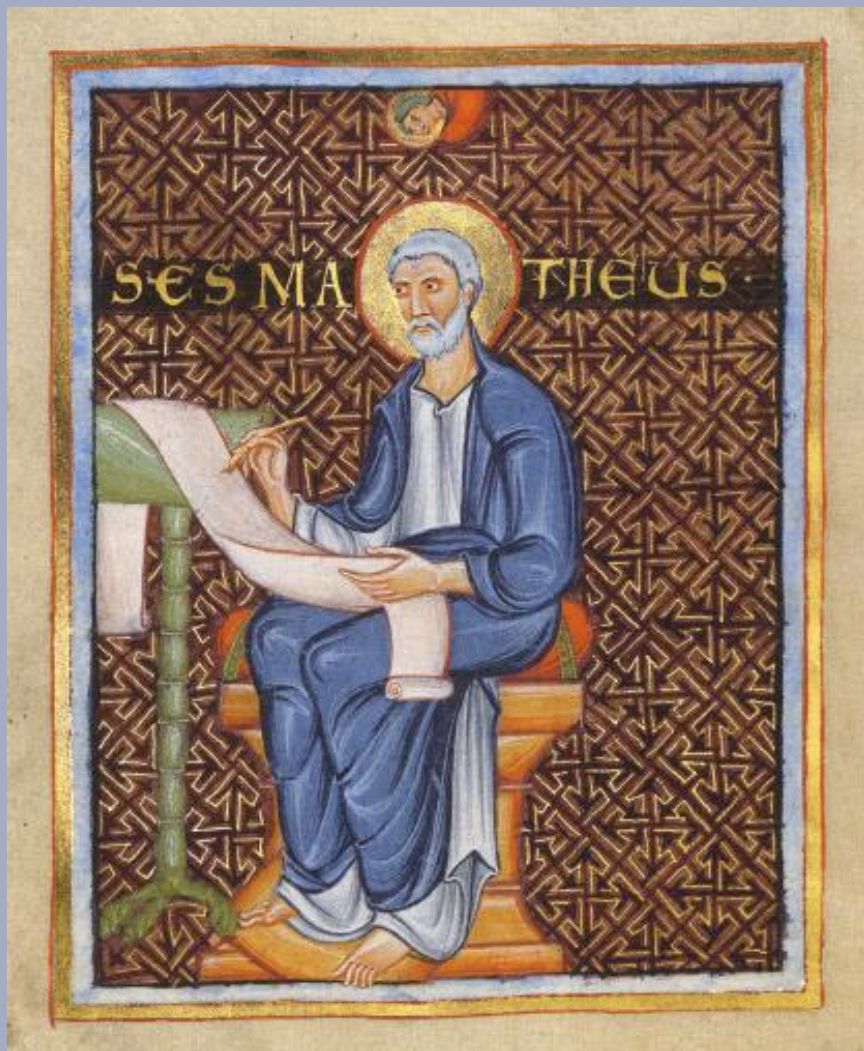 SES MATHEUS·